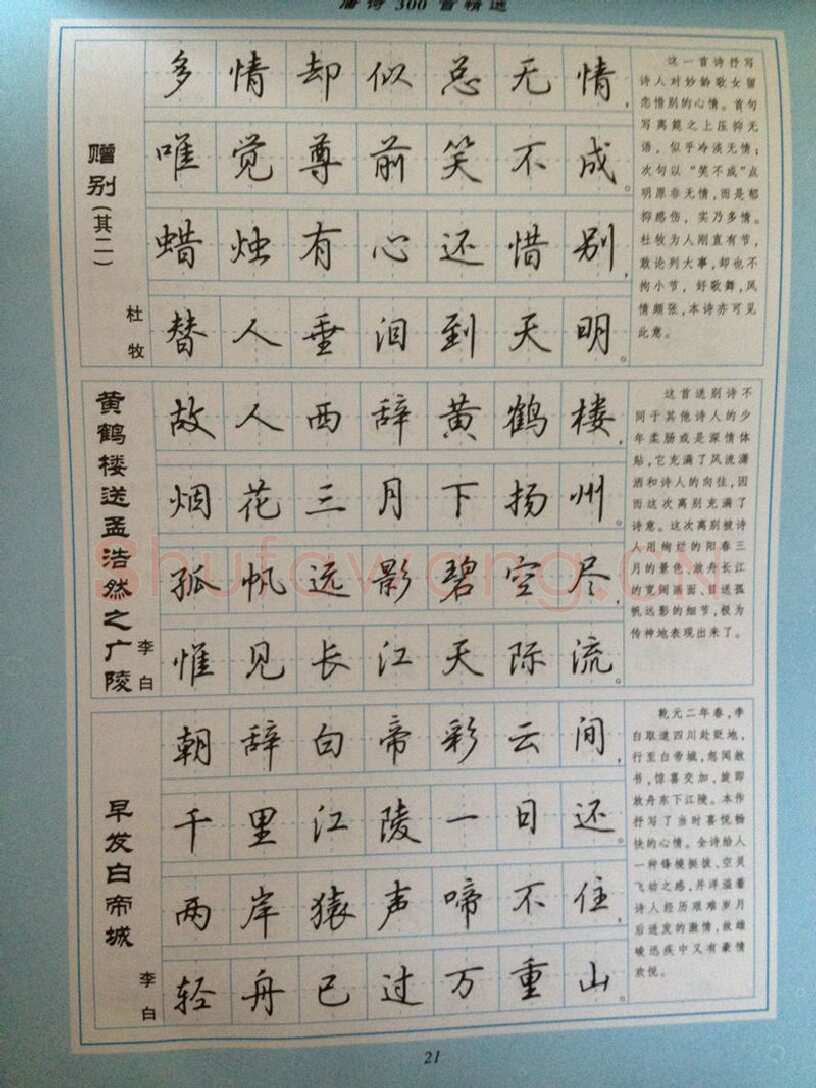 唐诗300首精选
赠别(其二)
杜牧
多情却似总无情,
唯觉尊前笑不成。
蜡烛有心还惜别,
替人垂泪到天明。
这一首诗抒写
诗人对妙龄歌女留
恋惜别的心情。首句
写离筵之上压抑无
语，似乎冷淡无情；
次句以“笑不成”点
明原非无情,而是郁
抑感伤，实乃多情。
杜牧为人刚直有节，
敢论列大事,却也不
拘小节，好歌舞,风
情颇张,本诗亦可见
此意。
黄鹤楼送孟浩然之广陵
李白
故人西辞黄鹤楼,
烟花三月下扬州。
孤帆远影碧空尽,
惟见长江天际流。
这首送别诗不
同于其他诗人的少
年柔肠或是深情体
贴,它充满了风流潇
洒和诗人的向往,因
而这次离别充满了
诗意。这次离别被诗
人用绚烂的阳春三
月的景色、放舟长江
的宽阔画面、目送孤
帆远影的细节,极为
传神地表现出来了。
早发白帝城
李白
朝辞白帝彩云间,
千里江陵一日还。
两岸猿声啼不住,
轻舟已过万重山。
乾元二年春,李
白取道四川赴贬地,
行至白帝城,忽闻赦
书,惊喜交加,旋即
放舟东下江陵。本作
抒写了当时喜悦畅
快的心情。全诗给人
一种锋棱挺拔、空灵
飞动之感,并洋溢着
诗人经历艰难岁月
后迸发的激情,故雄
峻迅疾中又有豪情
欢悦。
21
shufawang.cn